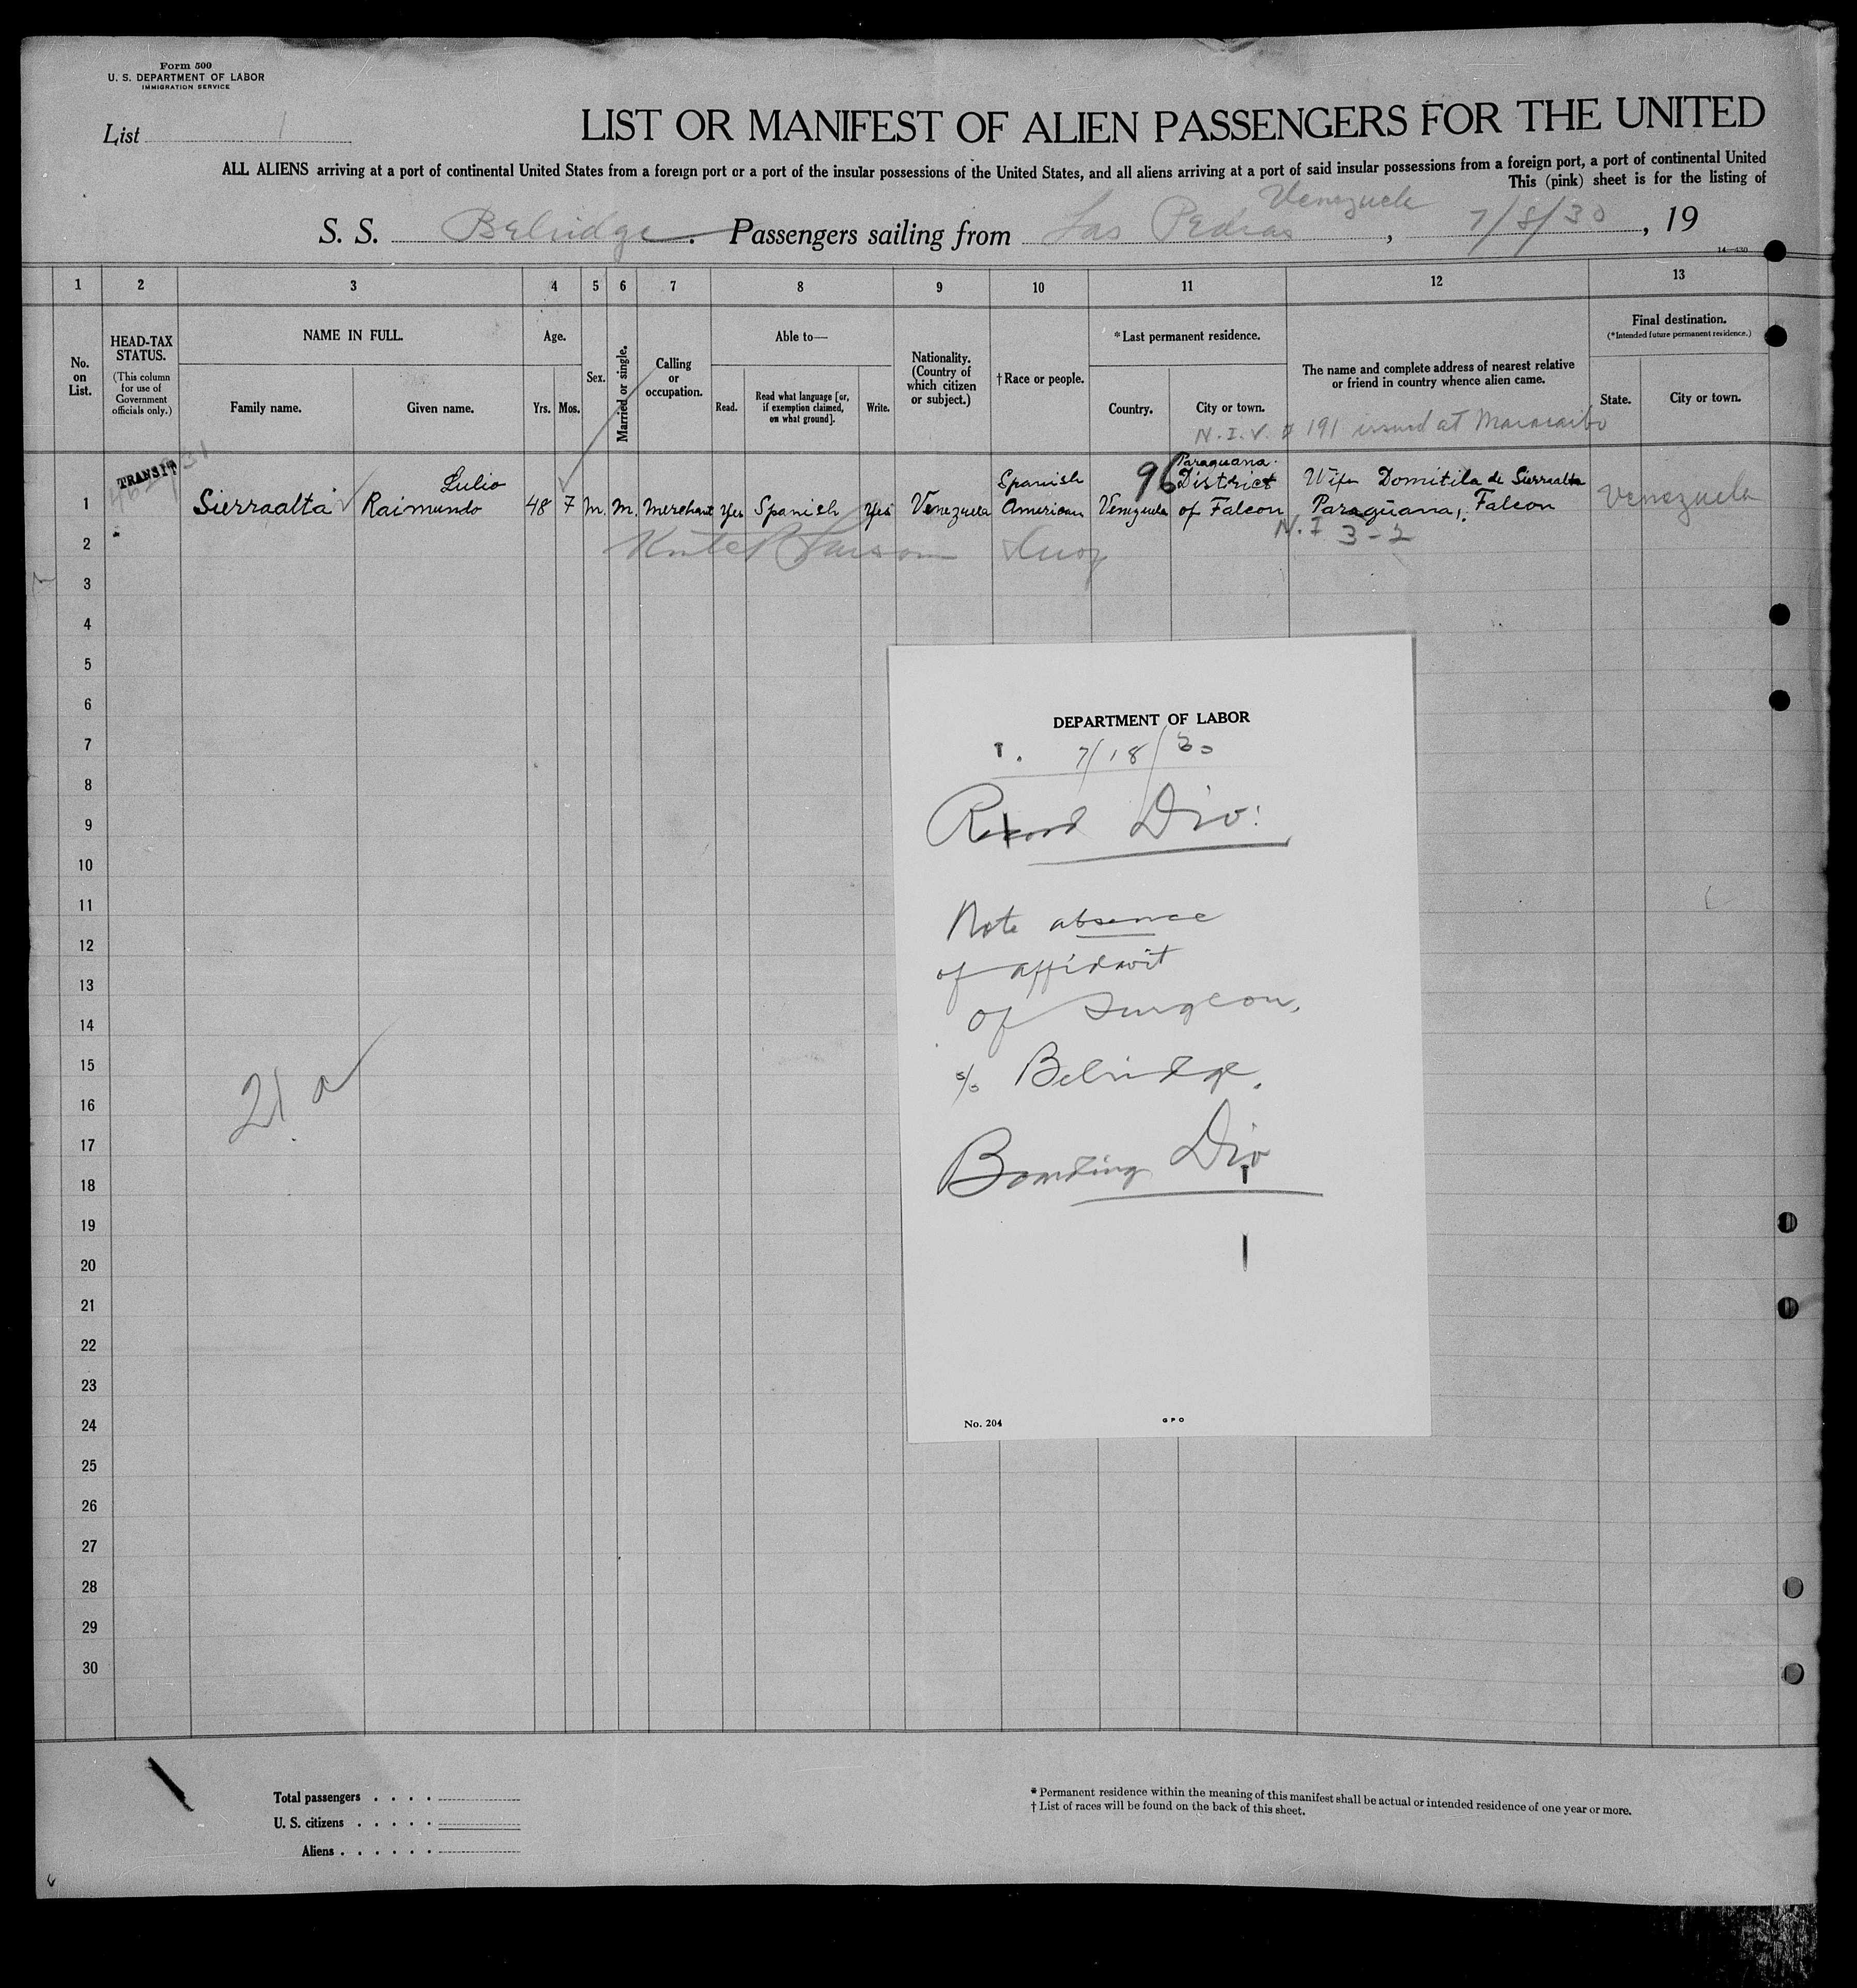 Form 500
U. S. DEPARTMENT OF LABOR
IMMIGRATION SERVICE
List 1
LIST OR MANIFEST OF ALIEN PASSENGERS FOR THE UNITED
ALL ALIENS arriving at a port of continental United States from a foreign port or a port of the insular possessions of the United States, and all aliens arriving at a port of said insular possessions from a foreign port, a port of continental United
This (pink) sheet is for the listing of
Venezuela
S. S. Belridge. Passengers sailing from Las Pedras, 7/8/30, 19
14—430
1 2 3 4 5 6 7 8 9 10 11 12 13
No. on List.
HEAD-TAX STATUS.
(This column for use of Government officials only.)
NAME IN FULL.
Family name. Given name.
Age.
Yrs. Mos.
Sex.
Married or single.
Calling or occupation.
Able to—
Read.
Read what language [or, if exemption claimed, on what ground].
Write.
Nationality. (Country of which citizen or subject.)
†Race or people.
*Last permanent residence.
Country. City or town.
The name and complete address of nearest relative or friend in country whence alien came.
Final destination.
(*Intended future permanent residence.)
State. City or town.
N.I.V. # 191 issued at Maracaibo
TRANSIT
1 Sierraalta Raimundo Lulio 48 7 M. M. Merchant Yes Spanish Yes Venezuela Spanish American Venezuela 96 Paraguana. District of Falcon Wife Domitila de Sierraalta Paraguana, Falcon Venezuela
N.I 3-2
2
3
4
5
6
7
8
9
10
11
12
13
14
15
16
17
18
19
20
21
22
23
24
25
26
27
28
29
30
21 a
DEPARTMENT OF LABOR
7/18/30
Record Div:
Note absence
of affidavit
of Surgeon,
s/s Belridge.
Boarding Div
No. 204
GPO
Total passengers . . . .
U. S. citizens . . . . .
Aliens . . . . . .
* Permanent residence within the meaning of this manifest shall be actual or intended residence of one year or more.
† List of races will be found on the back of this sheet.